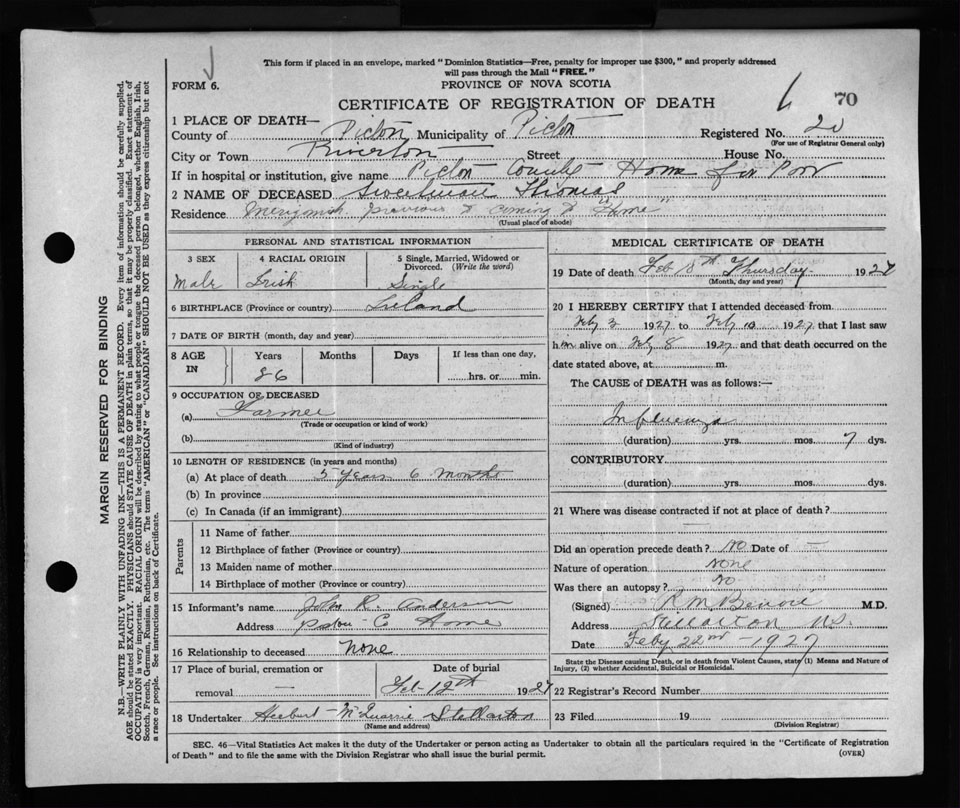 This form if placed in an envelope, marked "Dominion Statistics—Free, penalty for improper use $300," and properly addressed
will pass through the Mail "FREE."
FORM 6.
PROVINCE OF NOVA SCOTIA
CERTIFICATE OF REGISTRATION OF DEATH
70
1 PLACE OF DEATH—
County of Pictou Municipality of Pictou Registered No. 20
(For use of Registrar General only)
City or Town Riverton Street House No.
If in hospital or institution, give name Pictou County Home for Poor
2 NAME OF DECEASED Sweetman Thomas
Residence Merigomish previous to coming to "Home"
(Usual place of abode)
PERSONAL AND STATISTICAL INFORMATION
3 SEX 4 RACIAL ORIGIN 5 Single, Married, Widowed or
Divorced. (Write the word)
Male Irish Single
6 BIRTHPLACE (Province or country) Ireland
7 DATE OF BIRTH (month, day and year)
8 AGE IN Years Months Days If less than one day,
86 hrs. or min.
9 OCCUPATION OF DECEASED
(a) Farmer
(Trade or occupation or kind of work)
(b)
(Kind of industry)
10 LENGTH OF RESIDENCE (in years and months)
(a) At place of death 5 years 6 months
(b) In province
(c) In Canada (if an immigrant)
Parents
11 Name of father
12 Birthplace of father (Province or country)
13 Maiden name of mother
14 Birthplace of mother (Province or country)
15 Informant's name John R. Anderson
Address Pictou Co Home
16 Relationship to deceased None
17 Place of burial, cremation or Date of burial
removal — Feb 12th 1927
18 Undertaker Herbert McQuarrie Stellarton
(Name and address)
MEDICAL CERTIFICATE OF DEATH
19 Date of death Feb Thursday 1927
(Month, day and year)
20 I HEREBY CERTIFY that I attended deceased from
Feby 3 1927 to Feby 10 1927 that I last saw
him alive on Feby 8 1927 and that death occurred on the
date stated above, at m.
The CAUSE of DEATH was as follows:—
Influenza
(duration) yrs. mos. 7 dys.
CONTRIBUTORY
(duration) yrs. mos. dys.
21 Where was disease contracted if not at place of death?
Did an operation precede death? No Date of —
Nature of operation None
Was there an autopsy? No
(Signed) R M Benvie M.D.
Address Stellarton N.S.
Date Feby 22nd - 1927
State the Disease causing Death, or in death from Violent Causes, state (1) Means and Nature of
Injury, (2) whether Accidental, Suicidal or Homicidal.
22 Registrar's Record Number
23 Filed 19
(Division Registrar)
SEC. 46—Vital Statistics Act makes it the duty of the Undertaker or person acting as Undertaker to obtain all the particulars required in the "Certificate of Registration
of Death" and to file the same with the Division Registrar who shall issue the burial permit. (OVER)
MARGIN RESERVED FOR BINDING
N.B.—WRITE PLAINLY WITH UNFADING INK—THIS IS A PERMANENT RECORD. Every item of information should be carefully supplied.
AGE should be stated EXACTLY. PHYSICIANS should STATE CAUSE OF DEATH in plain terms, so that it may be properly classified. Exact statement of
OCCUPATION is very important. RACIAL ORIGIN will be described by stating to what people or tongue the deceased person belonged, whether English, Irish,
Scotch, French, German, Russian, Ruthenian, etc. The terms "AMERICAN" or "CANADIAN" SHOULD NOT BE USED as they express citizenship but not
a race or people. See instructions on back of Certificate.